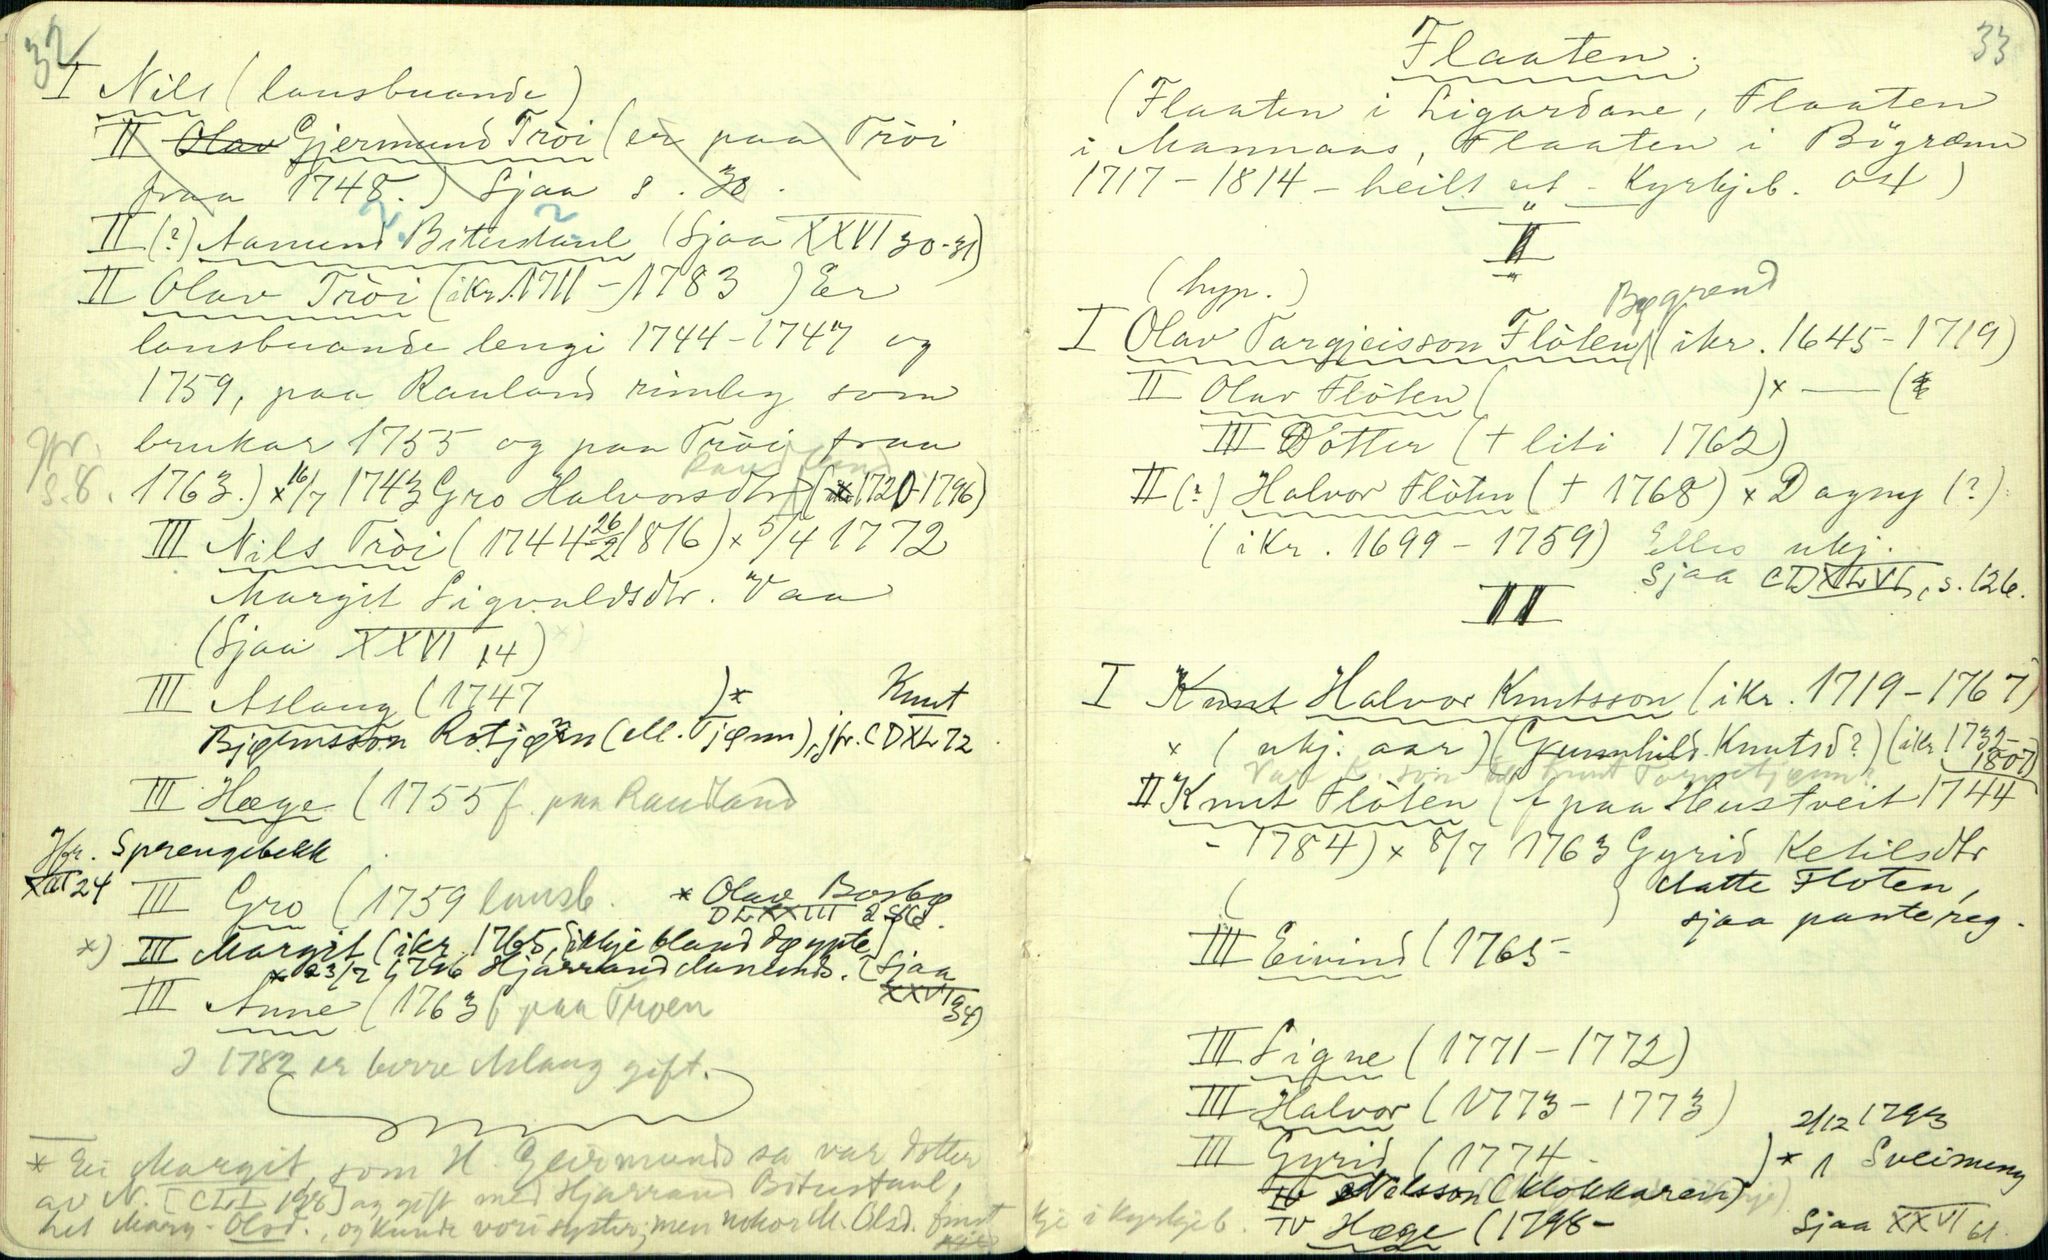 32
I Nils (lausbuande)
II Olav Gjermund Tròi (er paa Tròi
fraa 1748.) Sjaa s. 30.
II (?) Aamund Bitustaul (Sjaa XXVI 30-31)
II Olav Tròi (ikr. 1711 - 1783) Er
lausbuande lengi 1744-1747 og
1759, paa Rauland rimleg som
brukar 1755 og paa Tròi fraa
Jfr. s. 8.
Rauland
1763.) × 16/7 1743 Gro Halvorsdtr (1720-1796)
III Nils Tròi (1744 26/2 1816) × 5/4 1772
Margit Sigvaldsdtr. Vaa
(Sjaa XXVI 14) ×)
III Aslaug (1747 ) × Knut
Bjørnsson Rotjønn (ell. Tjønn), jfr. CDXL 72
III Hæge (1755 f. paa Rauland
Jfr. Sprengebekk
XVI 24
III Gro (1759 lausb. × Olav Bosbø
DLXXXIII 286.
×) III Margit (ikr. 1765, ikkje bland døypte)
× 23/7 1786 Hjarrand Aamunds. (Sjaa XXVI 34)
III Anne (1763 f paa Troen
I 1782 er berre Aslaug gift.
* Ei Margit, som H. Geirmunds sa var dotter
av N. [CLI 198] og gift med Hjarrand Bitustaul,
het Marg. Olsd., og kunde vori syster; men nokor M. Olsd. finst
kje i Kyrkjeb.
33
Flaaten.
(Flaaten i Ligardane, Flaaten
i Mannaas, Flaaten i Bögrænn
1717-1814 - heilt ut - Kyrkjeb. 04)
I
(hyp.)
Bøgrend
I Olav Targjeisson Flòten (ikr. 1645-1719)
II Olav Flòten ( ) × — (
III Dòtter (+ liti 1762)
II (?) Halvor Flòten (+ 1768) × Dagny (?)
(ikr. 1699-1759) Elles ukj.
Sjaa CDXLVI, s. 126.
II
I Knut Halvor Knutsson (ikr. 1719-1767)
× (ukj. aar) (Gunnhild Knutsd?) (ikr 1732-1807)
II Knut Flòten (f paa Heustveit 1744
- 1784) × 8/7 1763 Gyrid Ketilsdtr
( ) datte Floten,
sjaa pantereg.
III Eivind (1765-
III Signe (1771-1772)
III Halvor (1773-1773)
2/12 1793
III Gyrid (1774- ) × 1 Sveinung
Nilsson (klokkaren)
IV Hæge (1798- Sjaa XXVI 61.